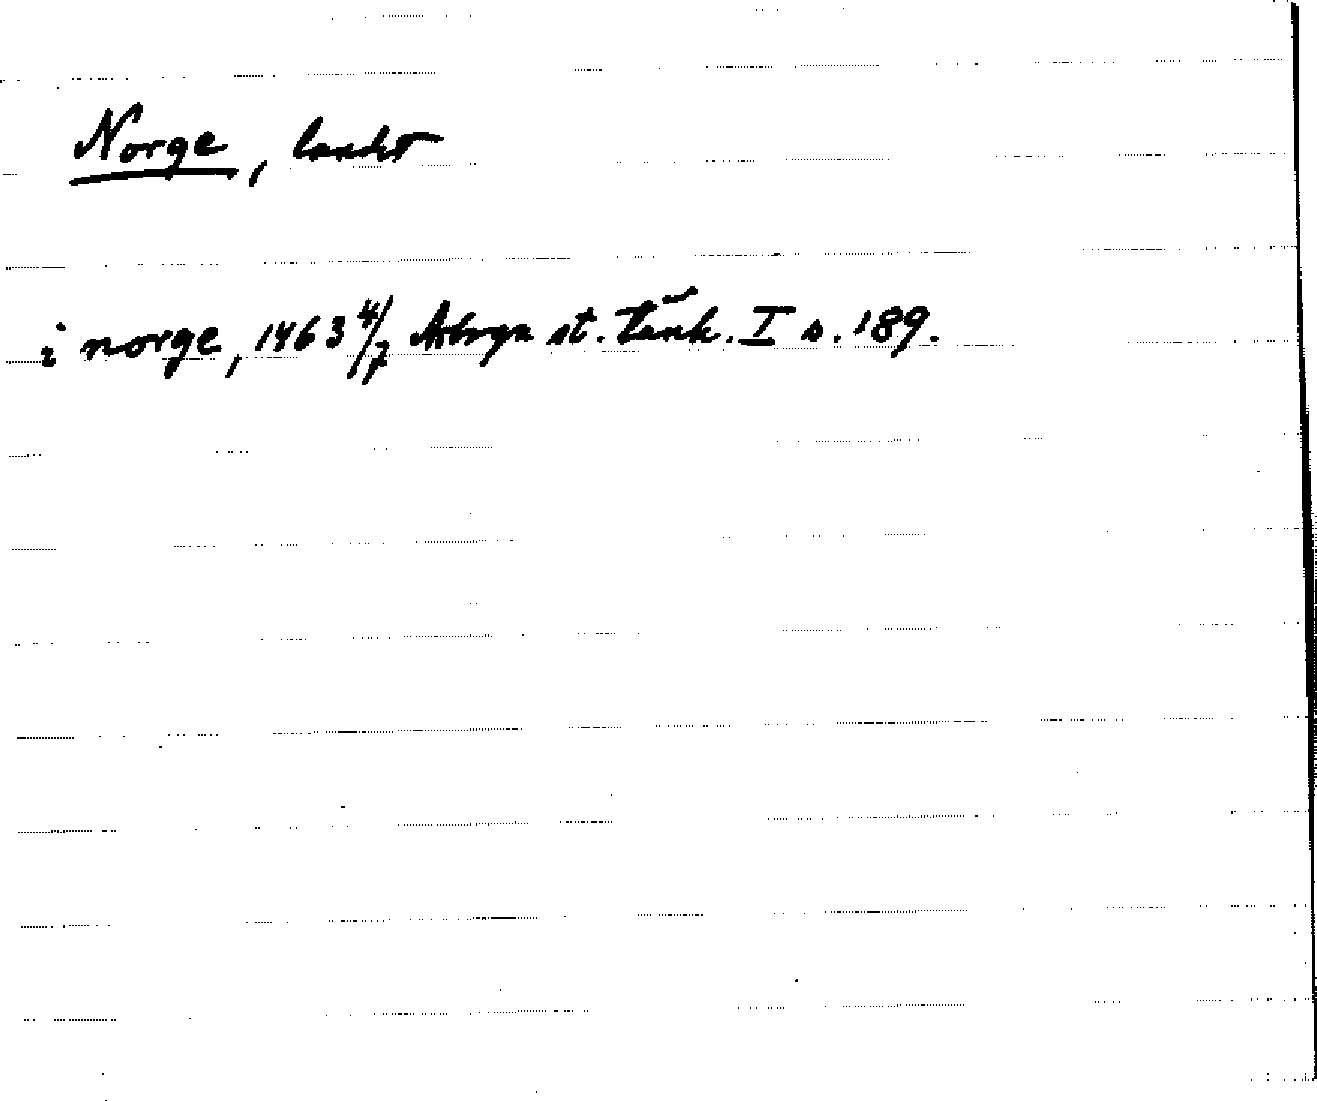 Norge, landet
i norge, 1463 4/7 Arboga st. tänk. I s. 189.